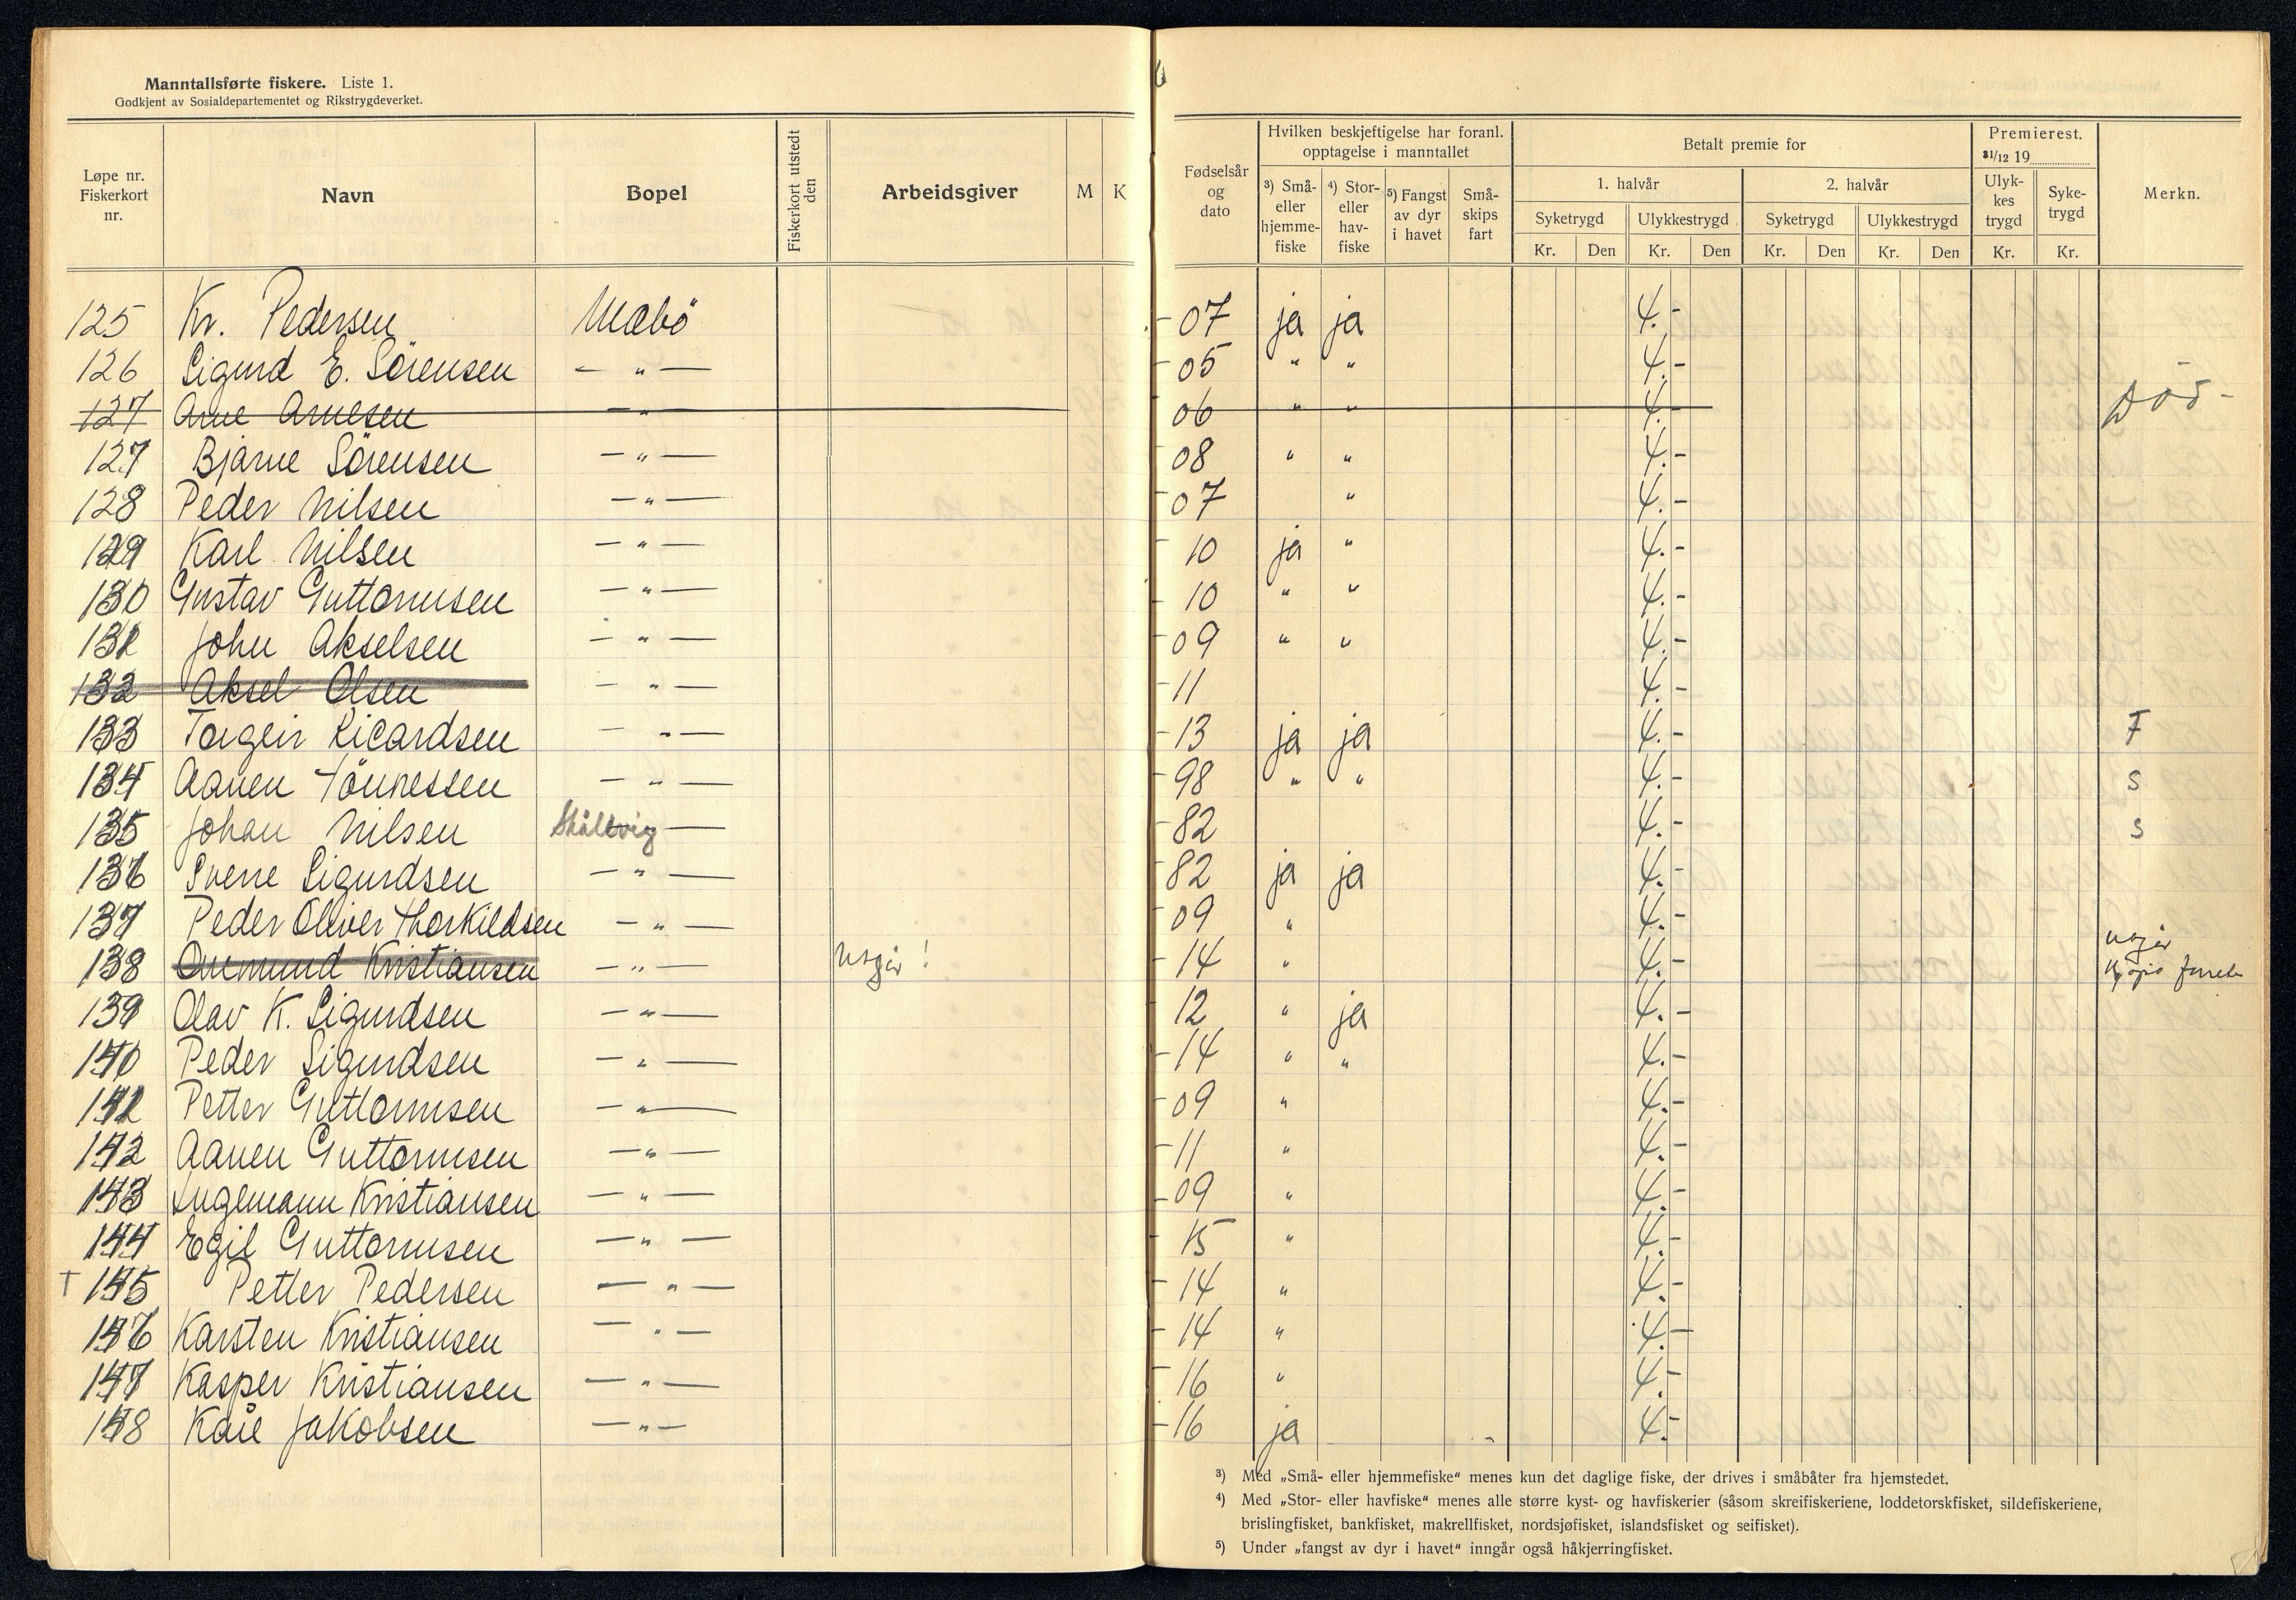 Manntallsførte fiskere. Liste 1.
Godkjent av Sosialdepartementet og Rikstrygdeverket.
Løpe nr. Fiskerkort nr. Navn Bopel Fiskerkort utstedt den Arbeidsgiver M K Fødselsår og dato Hvilken beskjeftigelse har foranl. opptagelse i manntallet Betalt premie for Premierest. 31/12 19 Merkn.
3) Små- eller hjemme- fiske 4) Stor- eller hav- fiske 5) Fangst av dyr i havet Små- skips fart 1. halvår 2. halvår Ulyk- kes trygd Syke- trygd
Syketrygd Ulykkestrygd Syketrygd Ulykkestrygd
Kr. Den Kr. Den Kr. Den Kr. Den Kr. Kr.
125 Kr. Pedersen Mæbö -07 ja ja 4.-
126 Sigurd E. Sörensen — " — -05 " " 4.-
127 Arne Arnesen — " 06 " " 4.- Död -
127 Bjarne Sörensen — " — 08 " " 4.-
128 Peder Nilsen — " — 07 " 4.-
129 Karl Nilsen — " — 10 ja " 4.-
130 Gustav Guttormsen — " — -10 " " 4.-
131 John Akselsen — " — -09 " " 4.-
132 Aksel Olsen — " — -11 4.-
133 Torgeir Ricardsen — " — -13 ja ja 4.- F
134 Aanen Tönnessen — " — -98 " " 4.- S
135 Johan Nilsen Skålevig — -82 4.- S
136 Sverre Sigurdsen — " — -82 ja ja 4.-
137 Peder Oliver Thorkildsen — " — -09 " 4.-
138 Kristiansen — " — utgår ! -14 " 4.- utgår
139 Olav K. Sigurdsen — " — 12 " ja 4.-
140 Peder Sigurdsen — " — -14 " " 4.-
141 Petter Guttormsen — " — -09 " 4.-
142 Aanen Guttormsen — " — -11 " 4.-
143 Ingemann Kristiansen — " — -09 " 4.-
144 Egil Guttormsen — " — 15 " 4.-
† 145 Petter Pedersen — " — -14 " 4.-
146 Karsten Kristiansen — " — -14 " 4.-
147 Kasper Kristiansen — " — -16 " 4.-
148 Kåre Jakobsen — " — -16 ja 4.-
3) Med „Små- eller hjemmefiske" menes kun det daglige fiske, der drives i småbåter fra hjemstedet.
4) Med „Stor- eller havfiske" menes alle større kyst- og havfiskerier (såsom skreifiskeriene, loddetorskfisket, sildefiskeriene,
brislingfisket, bankfisket, makrellfisket, nordsjøfisket, islandsfisket og seifisket).
5) Under „fangst av dyr i havet" inngår også håkjerringfisket.